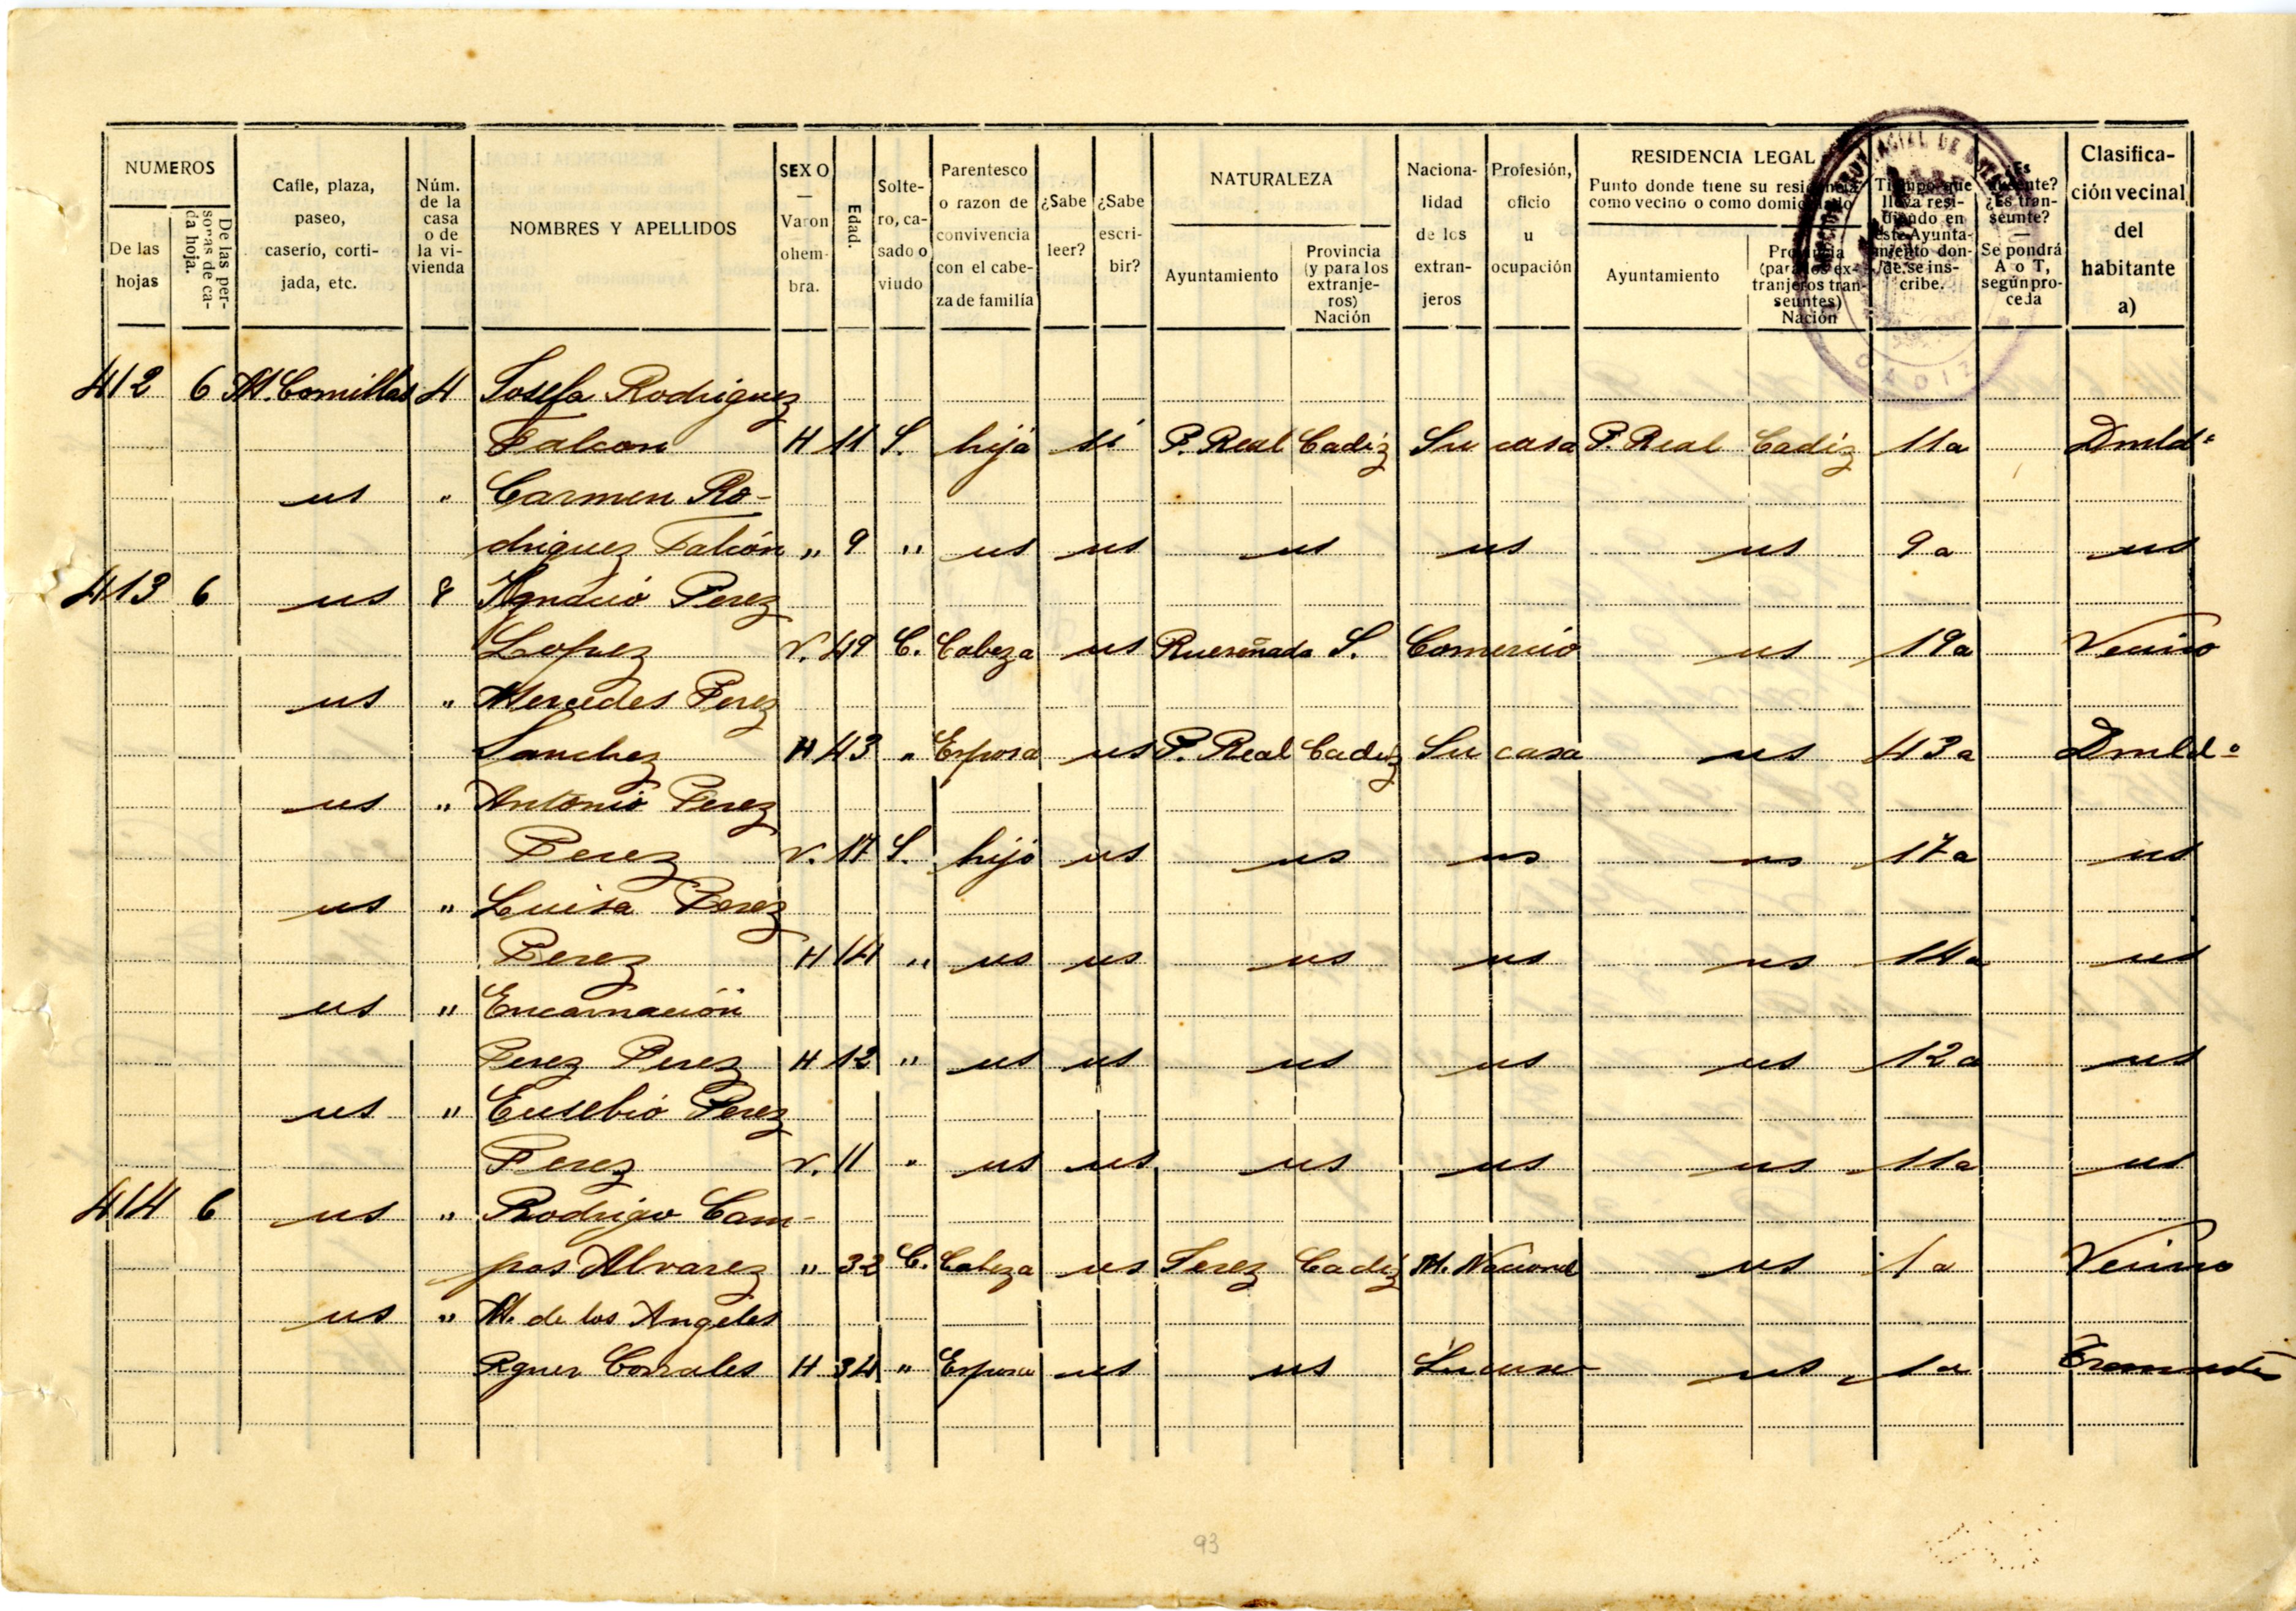 NUMEROS
De las hojas
De las personas de cada hoja.
Calle, plaza, paseo, caserío, cortijada, etc.
Núm. de la casa o de la vivienda
NOMBRES Y APELLIDOS
SEXO — Varon o hembra.
Edad.
Soltero, casado o viudo
Parentesco o razon de convivencia con el cabeza de familía
¿Sabe leer?
¿Sabe escribir?
NATURALEZA
Ayuntamiento
Provincia (y para los extranjeros) Nación
Nacionalidad de los extranjeros
Profesión, oficio u ocupación
RESIDENCIA LEGAL
Punto donde tiene su residencia como vecino o como domiciliado
Ayuntamiento
Provincia (para los extranjeros transeuntes) Nación
Tiempo que lleva residiendo en este Ayuntamiento donde se inscribe.
¿Es ausente? ¿Es transeunte? — Se pondrá A o T, según proceda
Clasificación vecinal del habitante a)
CADIZ
412 6 M. Comillas 4 Josefa Rodriguez
Falcon H 11 S. hija si P. Real Cadiz Su casa P. Real Cadiz 11a Dmldª
us " Carmen Ro-
driguez Falcón " 9 " us us us us us 9a us
413 6 us 8 Ygnacio Perez
Lopez V. 49 C. Cabeza us S. Comercio us 19a Vecino
us " Mercedes Perez
Sanchez H 43 " Esposa us P. Real Cadiz Su casa us 43a Dmldª
us " Antonio Perez
Perez V. 17 S. hijo us us us us 17a us
us " Luisa Perez
Perez H 14 " us us us us us 14a us
us " Encarnación
Perez Perez H 12 " us us us us us 12a us
us " Eusebio Perez
Perez V. 11 " us us us us us 11a us
414 6 us " Rodrigo Cam-
pos Alvarez " 32 C. Cabeza us Jerez Cadiz M. Nacional us 1a Vecino
us " M. de los Angeles
Corrales H 34 " Esposa us us Su casa us 1a
93